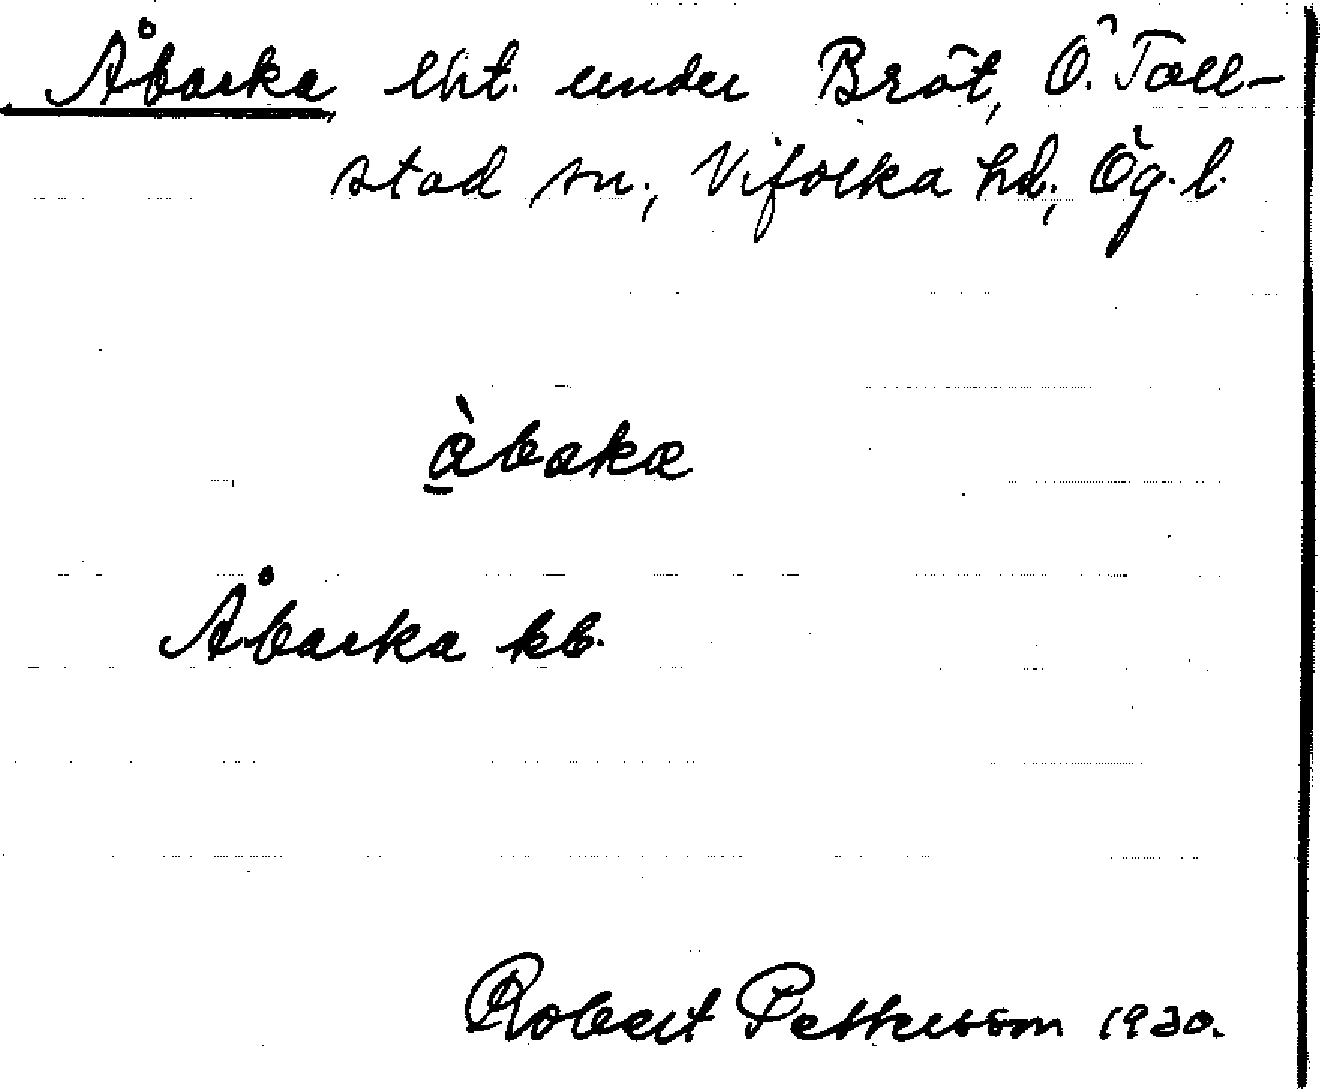 Åbacka, lht. under Bröt, Ö. Toll-
stad sn., Vifolka hd., Ög. l.
åbaka
Åbacka kb.
Robert Pettersson 1930.